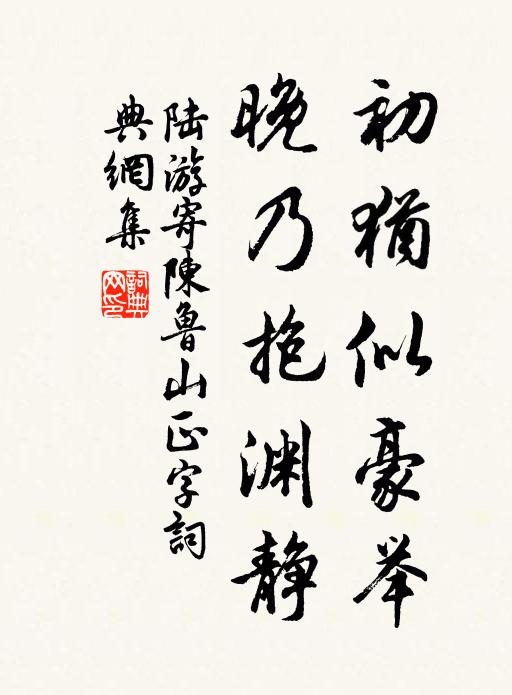 初猶似豪举
晚乃抱渊静
陆游寄陳魯山正字詞
典網集
詞典网印